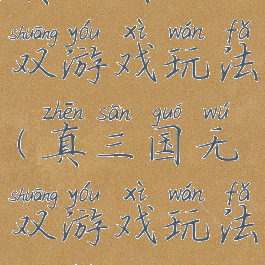 shuāng yóu xì wán fǎ
双游戏玩法
zhēn sān guó wú
(真三国无
shuāng yóu xì wán fǎ
双游戏玩法